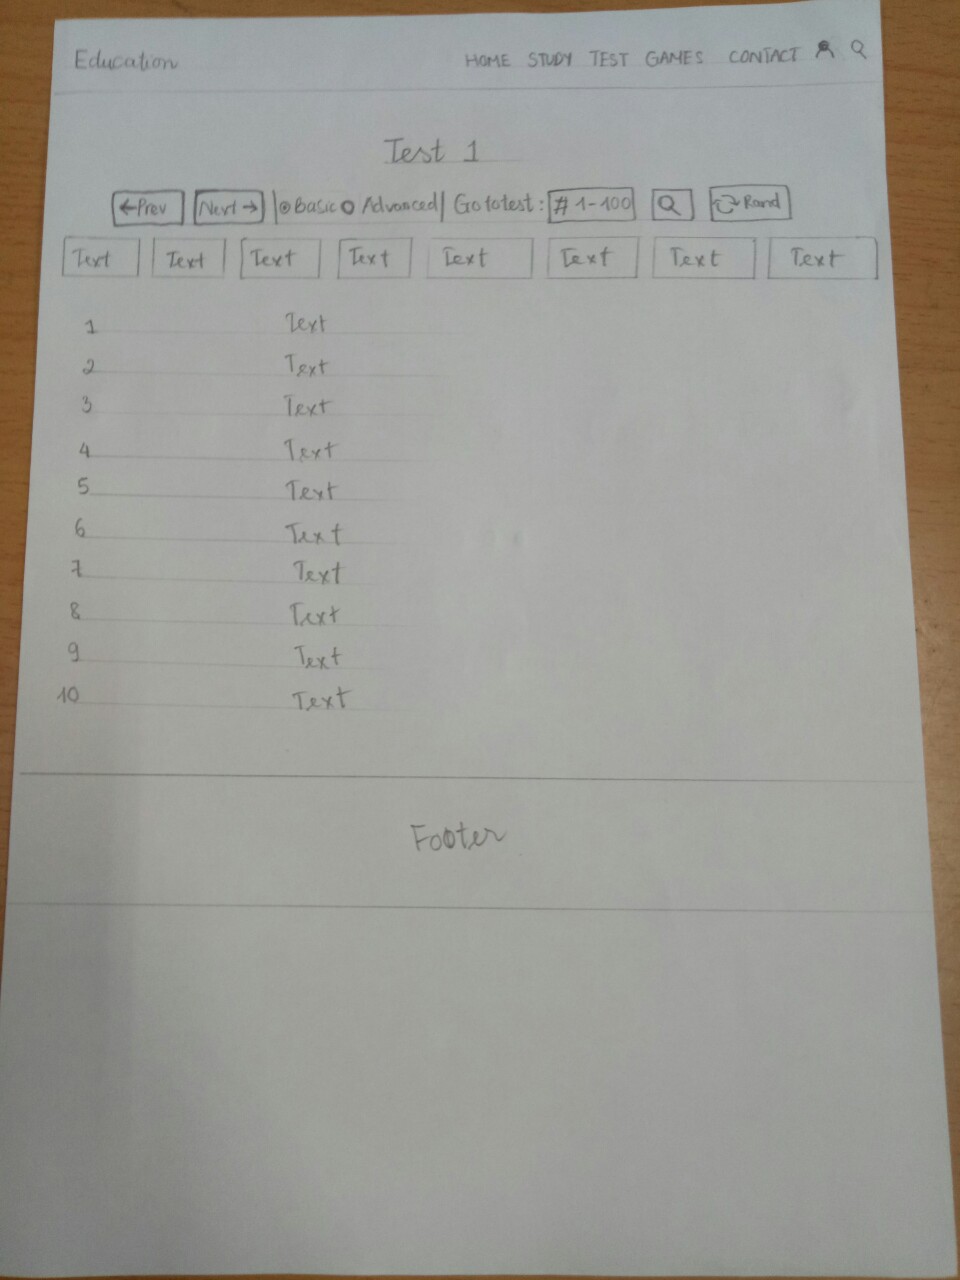 Education HOME STUDY TEST GAMES CONTACT
Test 1
←Prev Next→ Basic Advanced Go to test: # 1-100 Rand
Text Text Text Text Text Text Text Text
1 Text
2 Text
3 Text
4 Text
5 Text
6 Text
7 Text
8 Text
9 Text
10 Text
Footer